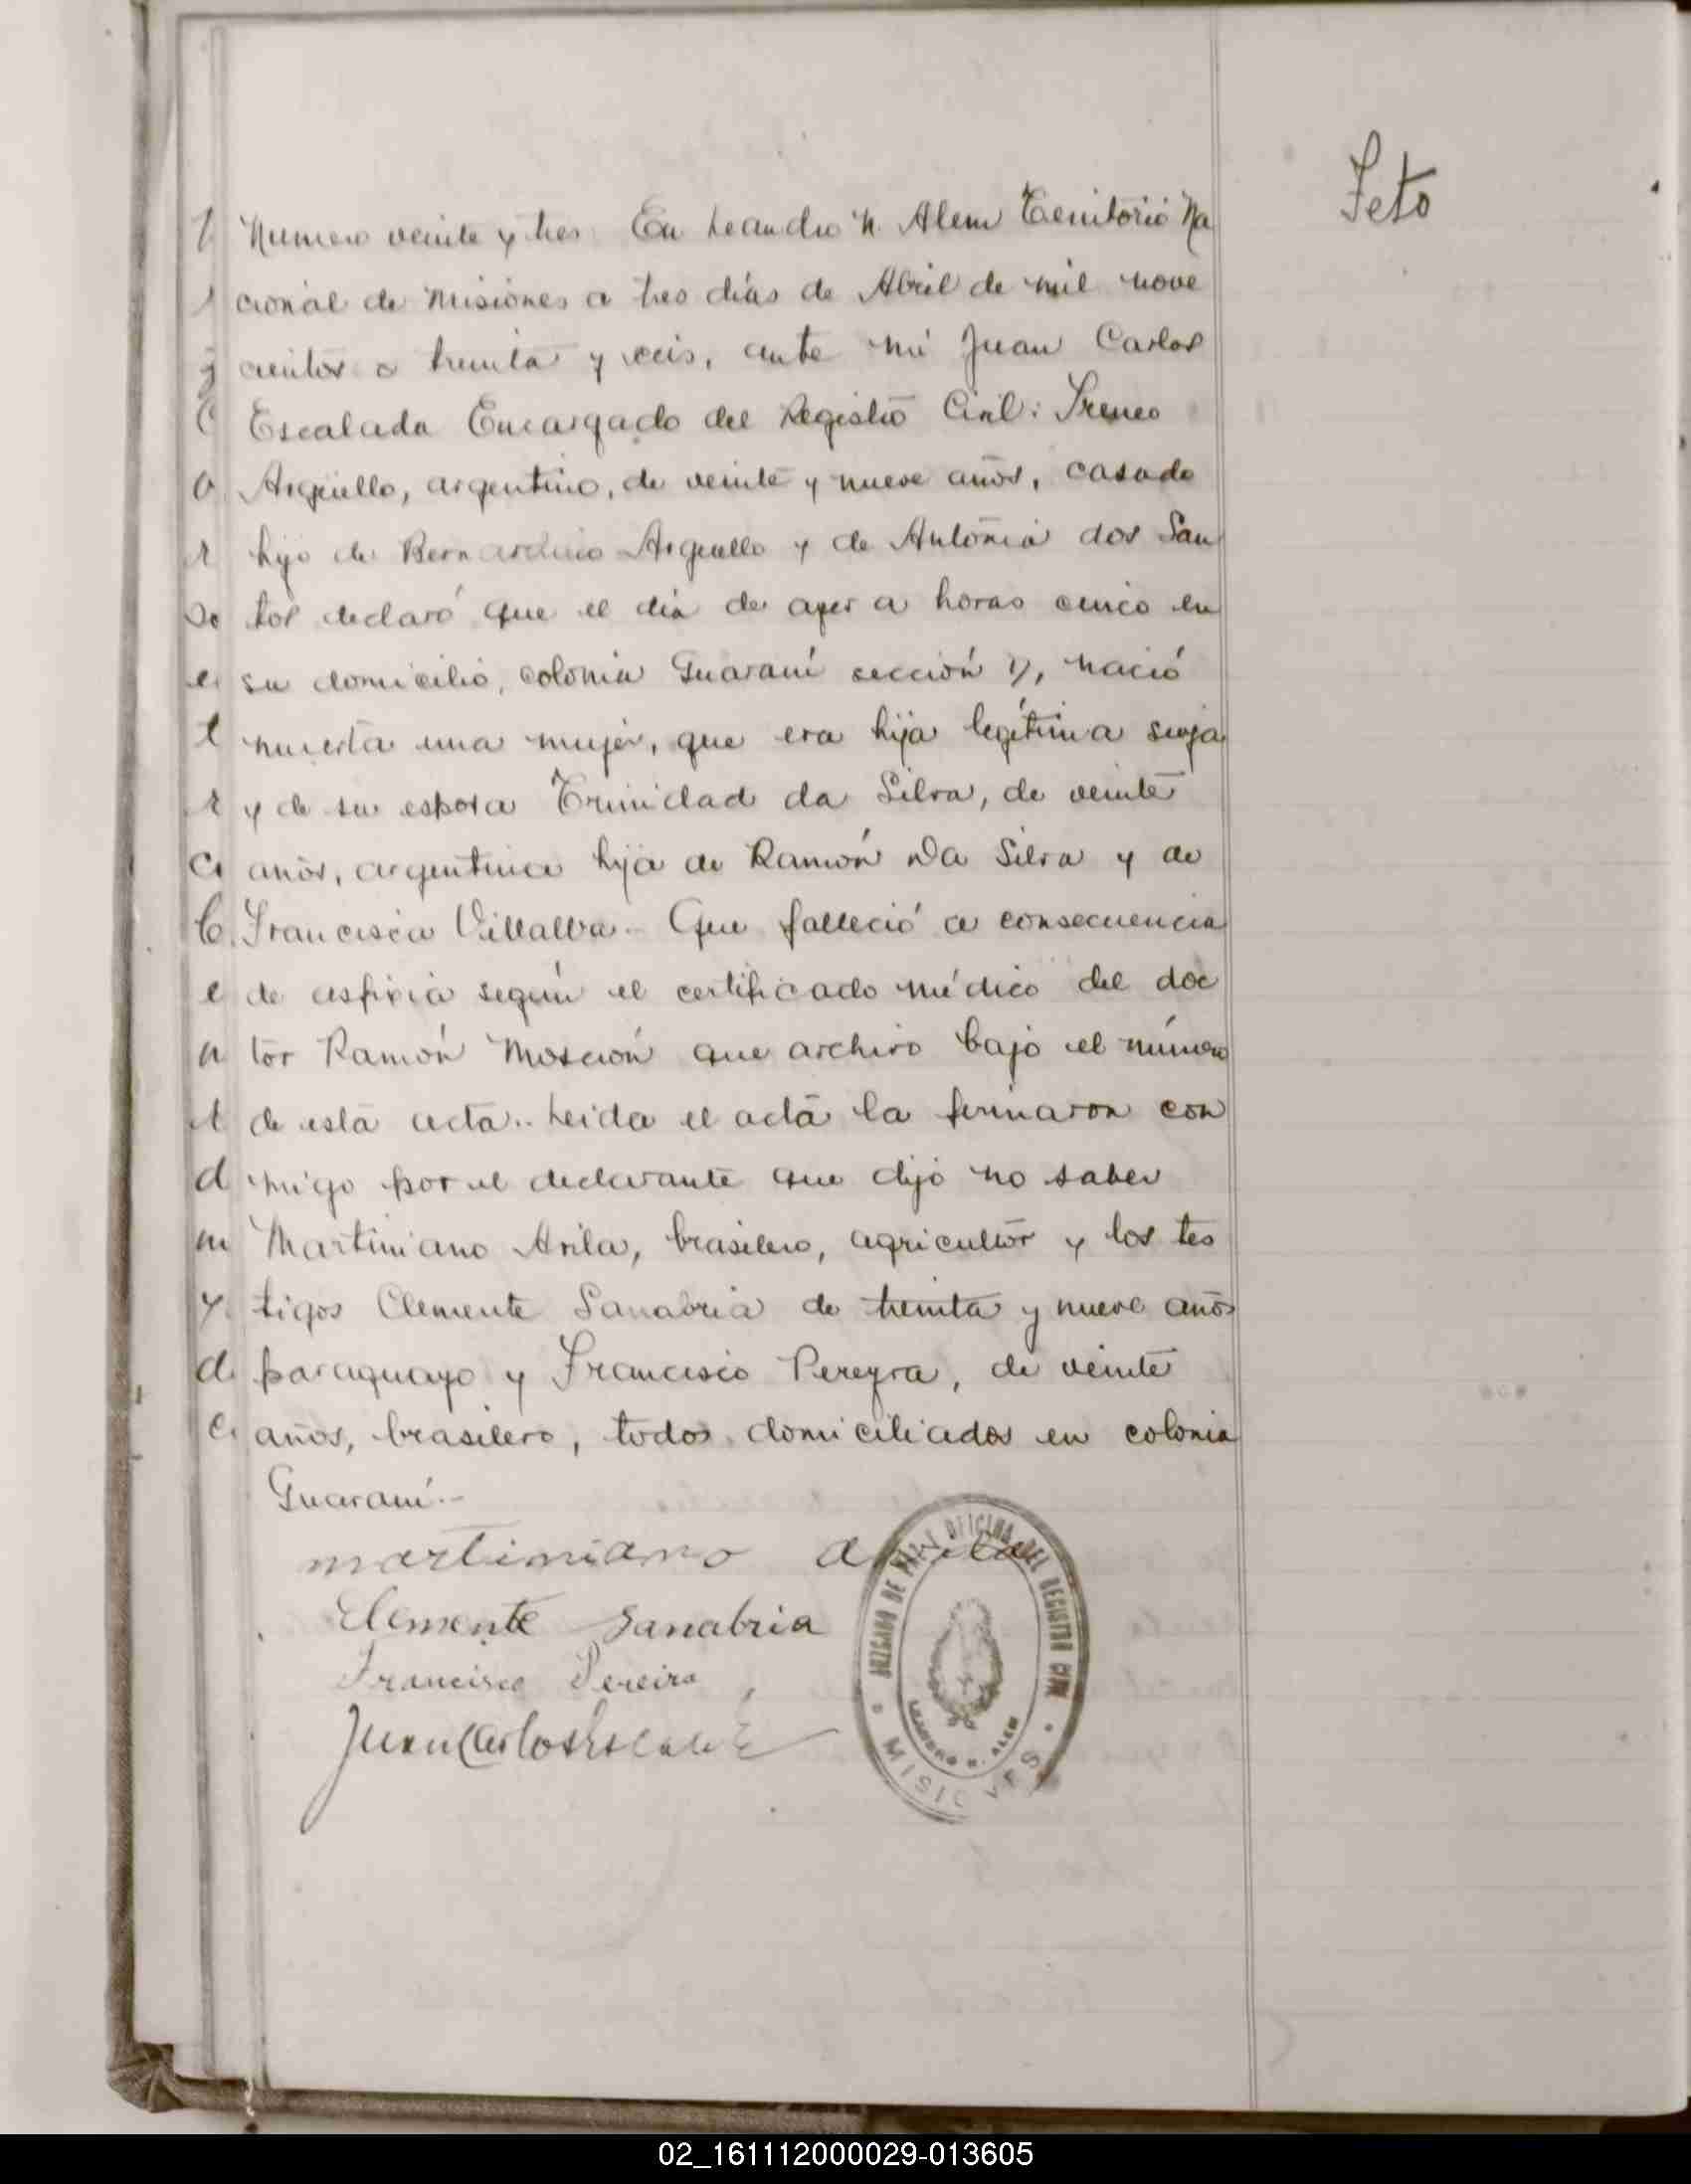 Feto
Numero veinte y tres En Leandro N. Alem Territorio Na
cional de Misiones a tres días de Abril de mil nove
cientos treinta y seis, ante mi Juan Carlos
Escalada Encargado del Registro Civil: Ireneo
Argüello, argentino, de veinte y nueve años, casado
hijo de Bernardino Arguello y de Antonia dos San
tos declaró que el día de ayer a horas cinco en
su domicilio, colonia Guaraní sección, nació
muerta una mujer, que era hija legítima suya
y de su esposa Trinidad da Silva, de veinte
años, argentina hija de Ramón Da Silva y de
Francisca Villalba. Que falleció a consecuencia
de asfixia según el certificado médico del doc
tor Ramón que archivo bajo el número
de esta acta.. Leida el acta la firmaron con
migo por el declarante que dijo no saber
Martiniano Avila, brasilero, agricultor y los tes
tigos Clemente Sanabria de treinta y nueve años
paraguayo y Francisco Pereyra, de veinte
años, brasilero, todos domiciliados en colonia
Guaraní.-
martiniano avila
Clemente Sanabria
Francisco Pereira
Juan Carlos Escalada
JUZGADO DE PAZ Y OFICINA DEL REGISTRO CIVIL
LEANDRO N. ALEM
MISIONES
02_161112000029-013605